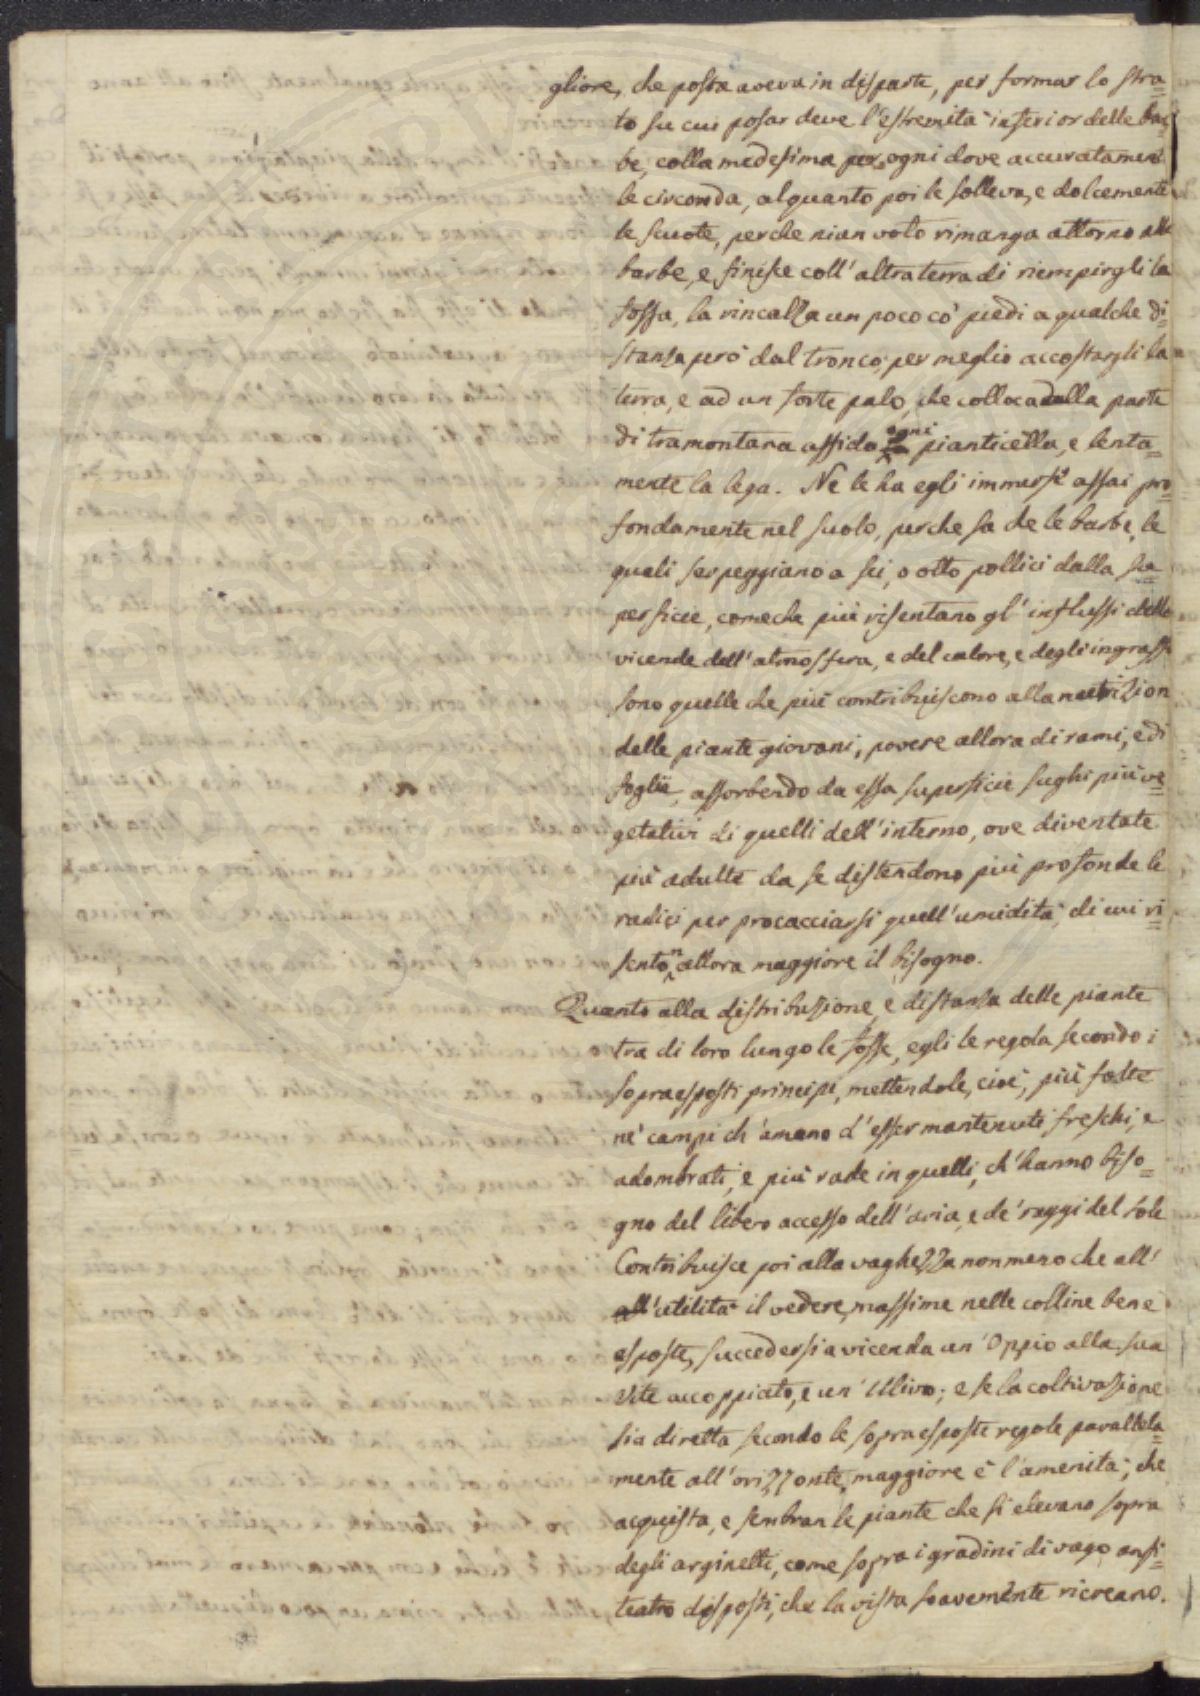 gliore, che posta aveva in disparte, per formar lo stra=
to su cui posar deve l'estremità inferior delle bar=
be, colla medesima per ogni dove accuratament
le circonda, alquanto poi le solleva, e dolcemente
le scuote, perche niun voto rimanga attorno alle
barbe, e finisce coll'altra terra di riempirgli la
fossa, la rincalza un poco co' piedi a qualche di=
stanza però dal tronco per meglio accostargli la
terra, e ad un forte palo, che colloca dalla parte
di tramontana affida ogni pianticella, e lenta=
mente la lega. Ne le ha egli immerse assai pro=
fondamente nel suolo, perche sa che le barbe, le
quali serpeggiano a sei, o otto pollici dalla su=
perficie, comeche più risentano gl'influssi delle
vicende dell'atmosfera, e del calore, e degli ingrassi
sono quelle che più contribuiscono alla nutrizion
delle piante giovani, povere allora di rami, e di
foglie, assorbendo da essa superficie sughi più ve=
getativi di quelli dell'interno, ove diventate
più adulte da se distendono più profonde le
radici per procacciarsi quell'umidità, di cui ri=
senton allora maggiore il bisogno.
Quanto alla distribuzione, e distanza delle piante
tra di loro lungo le fosse, egli le regola secondo i
sopraesposti principi, mettendole, cioè, più folte
ne' campi ch'amano d'esser mantenuti freschi, e
adombrati, e più rade in quelli, ch'hanno biso=
gno del libero accesso dell'aria, e de' raggi del sole
Contribuisce poi alla vaghezza nonmeno che all'
all'utilità il vedere, massime nelle colline bene
esposte, succedersi a vicenda un'Oppio alla sua
Vite accoppiato, e un'Ulivo; e se la coltivazione
sia diretta secondo le sopraesposte regole parallela=
mente all'orizzonte, maggiore è l'amenità, che
acquista, e sembran le piante che si elevano sopra
degli arginelli, come sopra i gradini di vago anfi=
teatro disposti, che la vista soavemente ricreano.